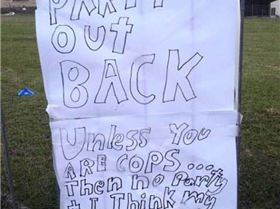 PARTY
OUt
BACK
UNLESS YOU
ARE COPS...
then no Party
& I think my